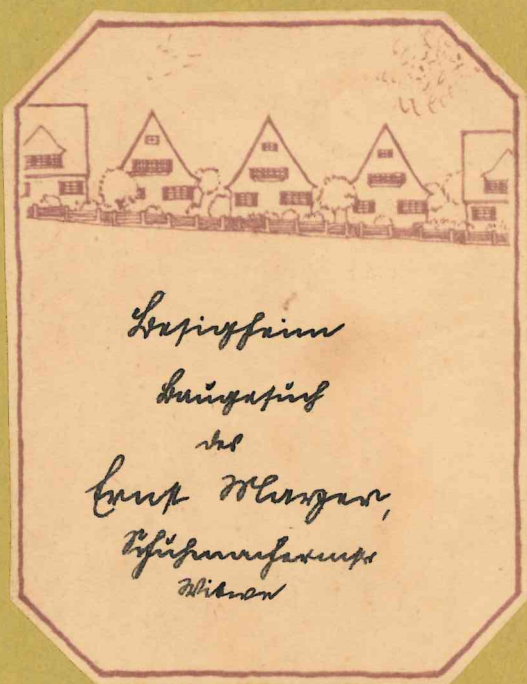 Besigheim
Baugesuch
des
Ernst Mayer,
Schuhmachermstr
Witwe